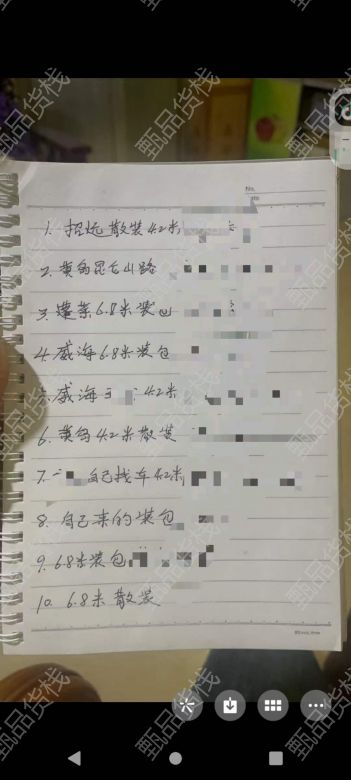 甄品货栈
No.
1. 招远散装 4.2米
2. 黄岛昆仑山路
3. 蓬莱 6.8米装包
4. 威海 6.8米装包
5. 威海 4.2米
6. 黄岛 4.2米散装
7. 自己找车 4.2米
8. 自己来的装包
9. 6.8米装包
10. 6.8米散装